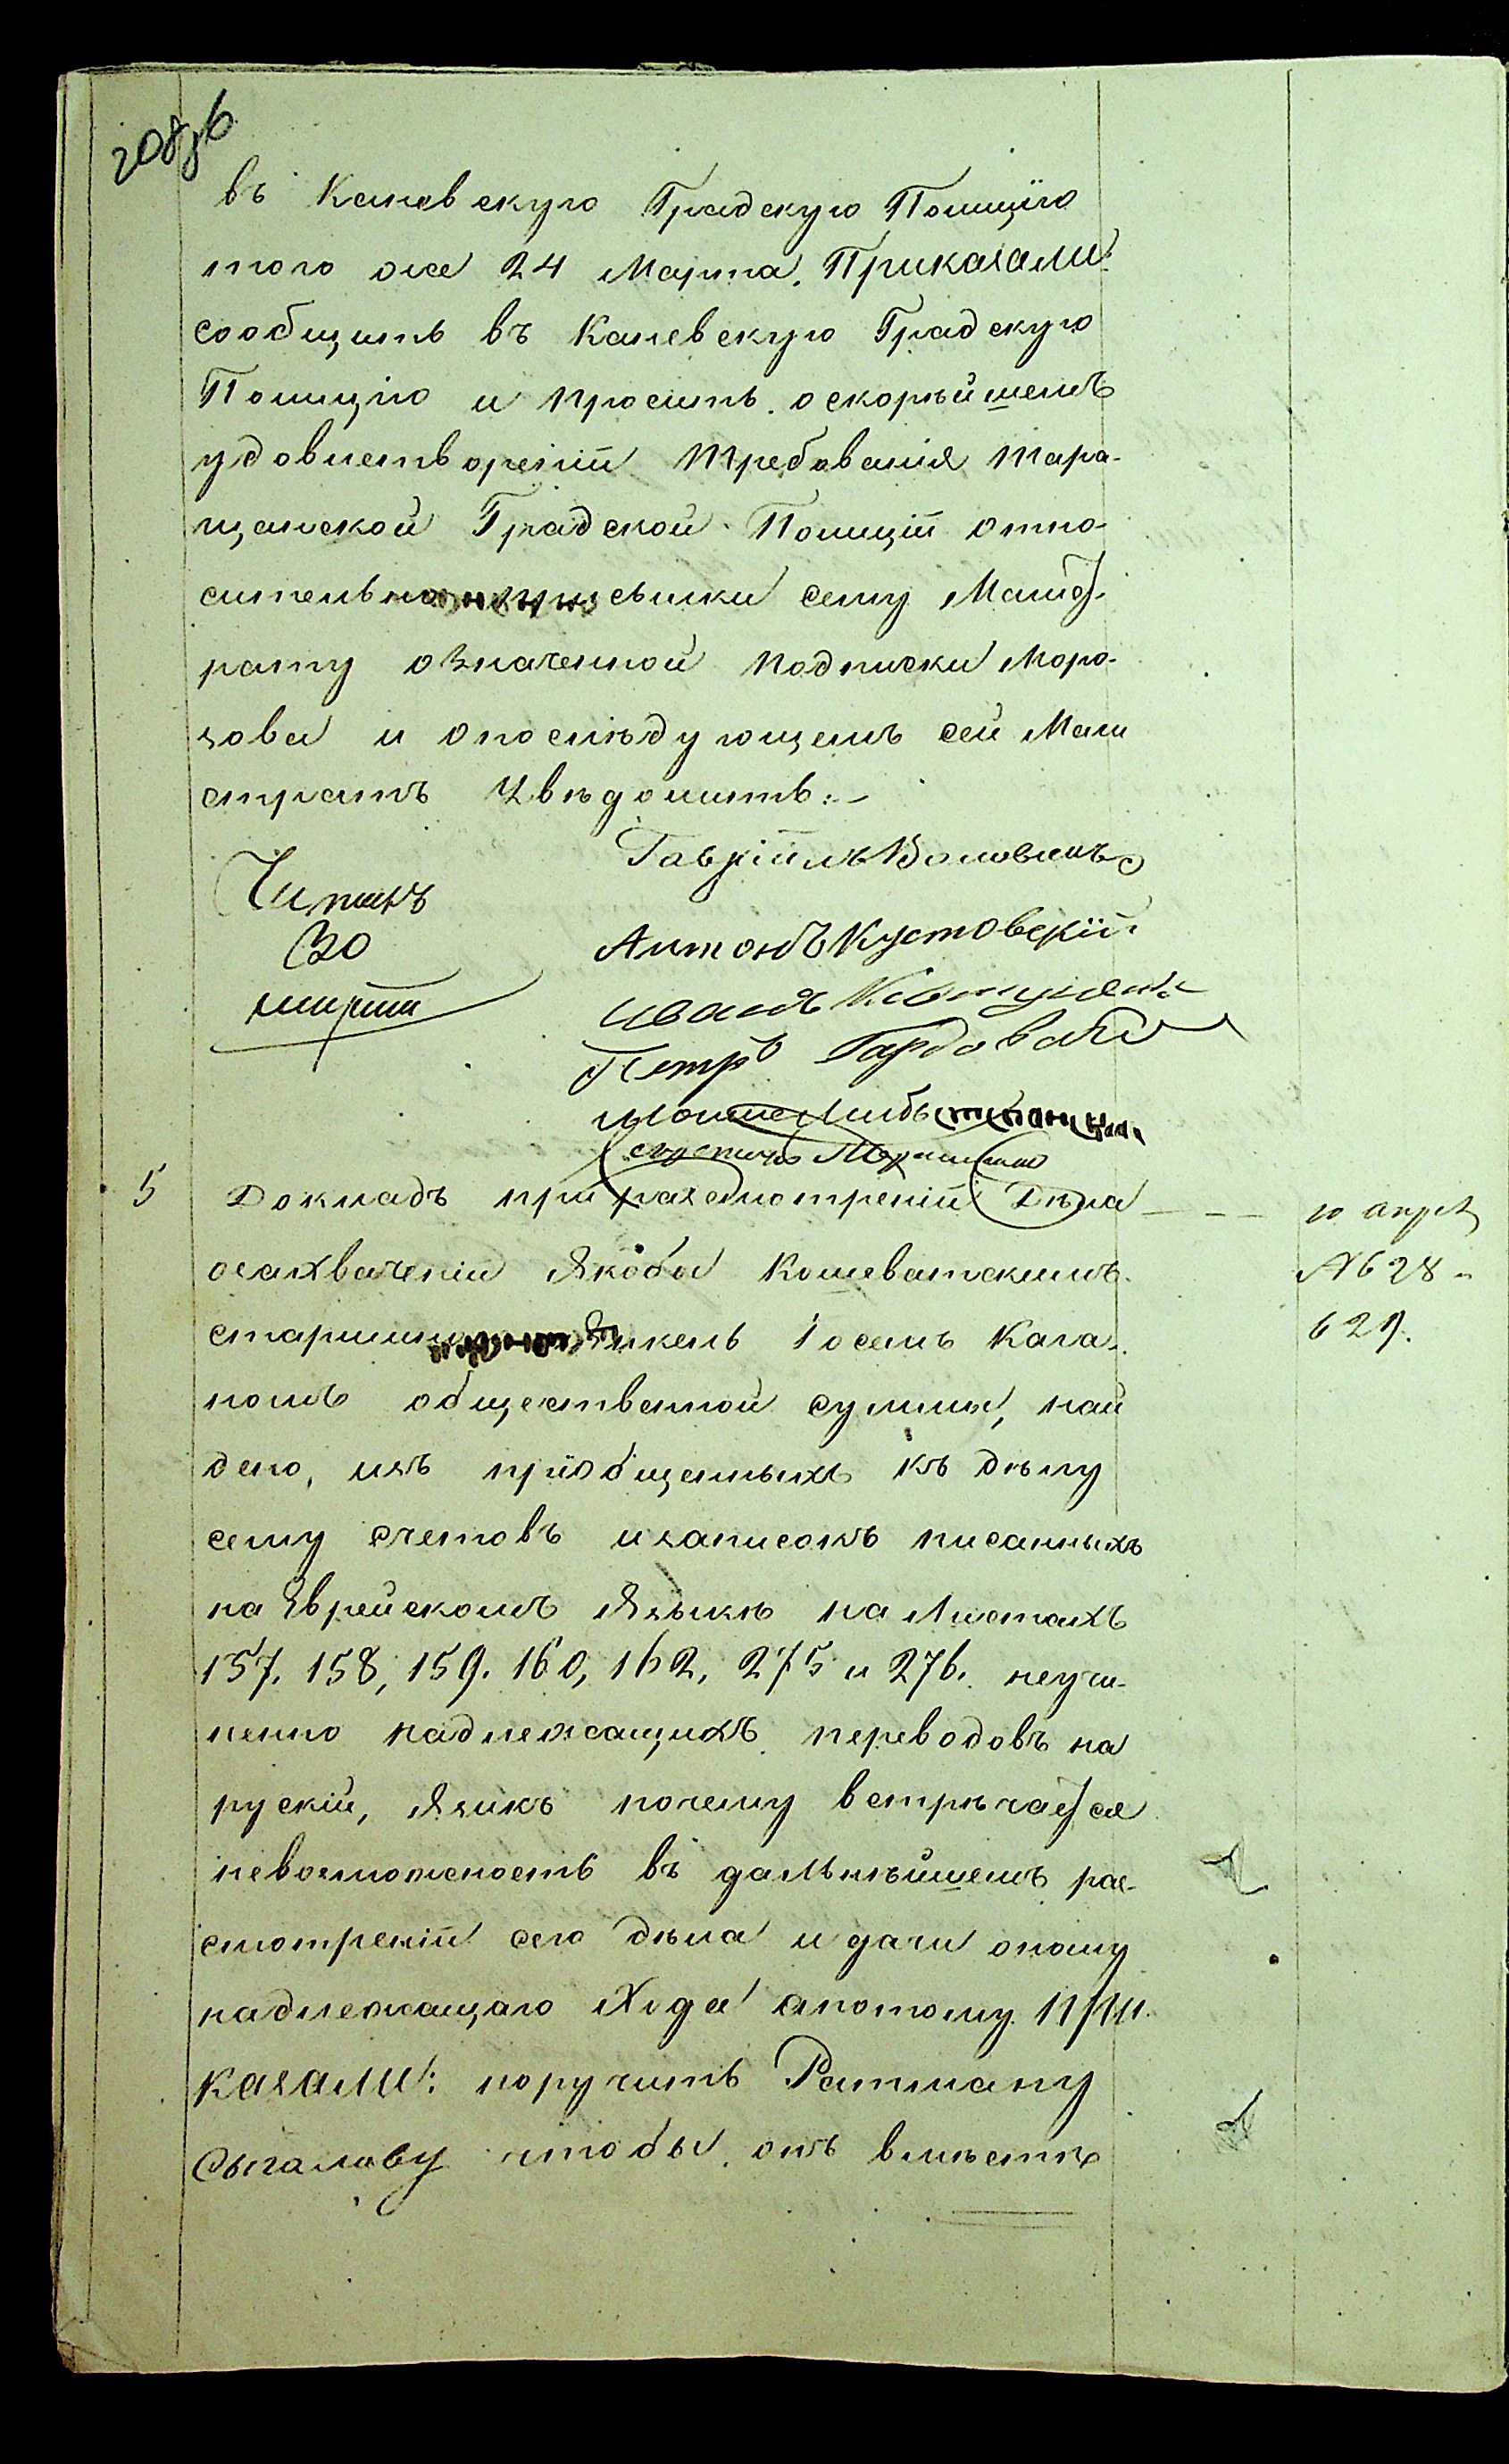 208об
въ Каневскую Градскую Полицію
того же 24 Марта. Приказали:
сообщить въ Каневскую Градскую
Полицію и просить о скорѣйшемъ
удовлетвореніи требованія Тара-
щанской Градской Полиціи отно-
сительно высылки сему Магист-
рату означенной подписки Моро-
зова и о послѣдующемъ сей Маги
стратъ Увѣдомить:-
Гавріилъ
Читалъ
30
марта
Антонъ Кустовскій
Иванъ
Петръ
Мошие Лейбъ
5
Докладъ при разсмотреніи Дѣла
10 апрел
о захваченіи Якобы Кошеватскимъ
№ 628 и
старшиною Янкель Іосемъ Кага-
629.
номъ общественной суммы, най
дено, изъ пріобщенныхъ къ дѣлу
сему счетовъ и записокъ писанныхъ
на Еврейскомъ Языкѣ на Листахъ
157. 158, 159. 160, 162, 275 и 276. неучи-
ненно надлежащихъ переводовъ на
рускій, Языкъ почему встрѣчается
невозможность въ дальнѣйшемъ рас-
смотреніи сего дѣла и дачи оному
надлежащаго Хода а потому При
казали: поручить Ратману
Сыгалову чтобы онъ вмѣстѣ